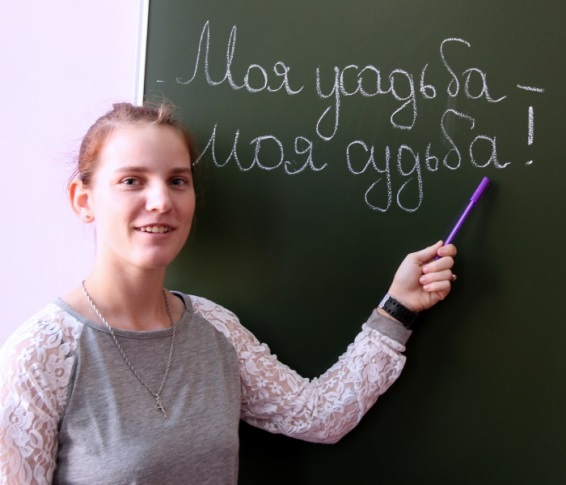 Моя усадьба –
моя судьба!